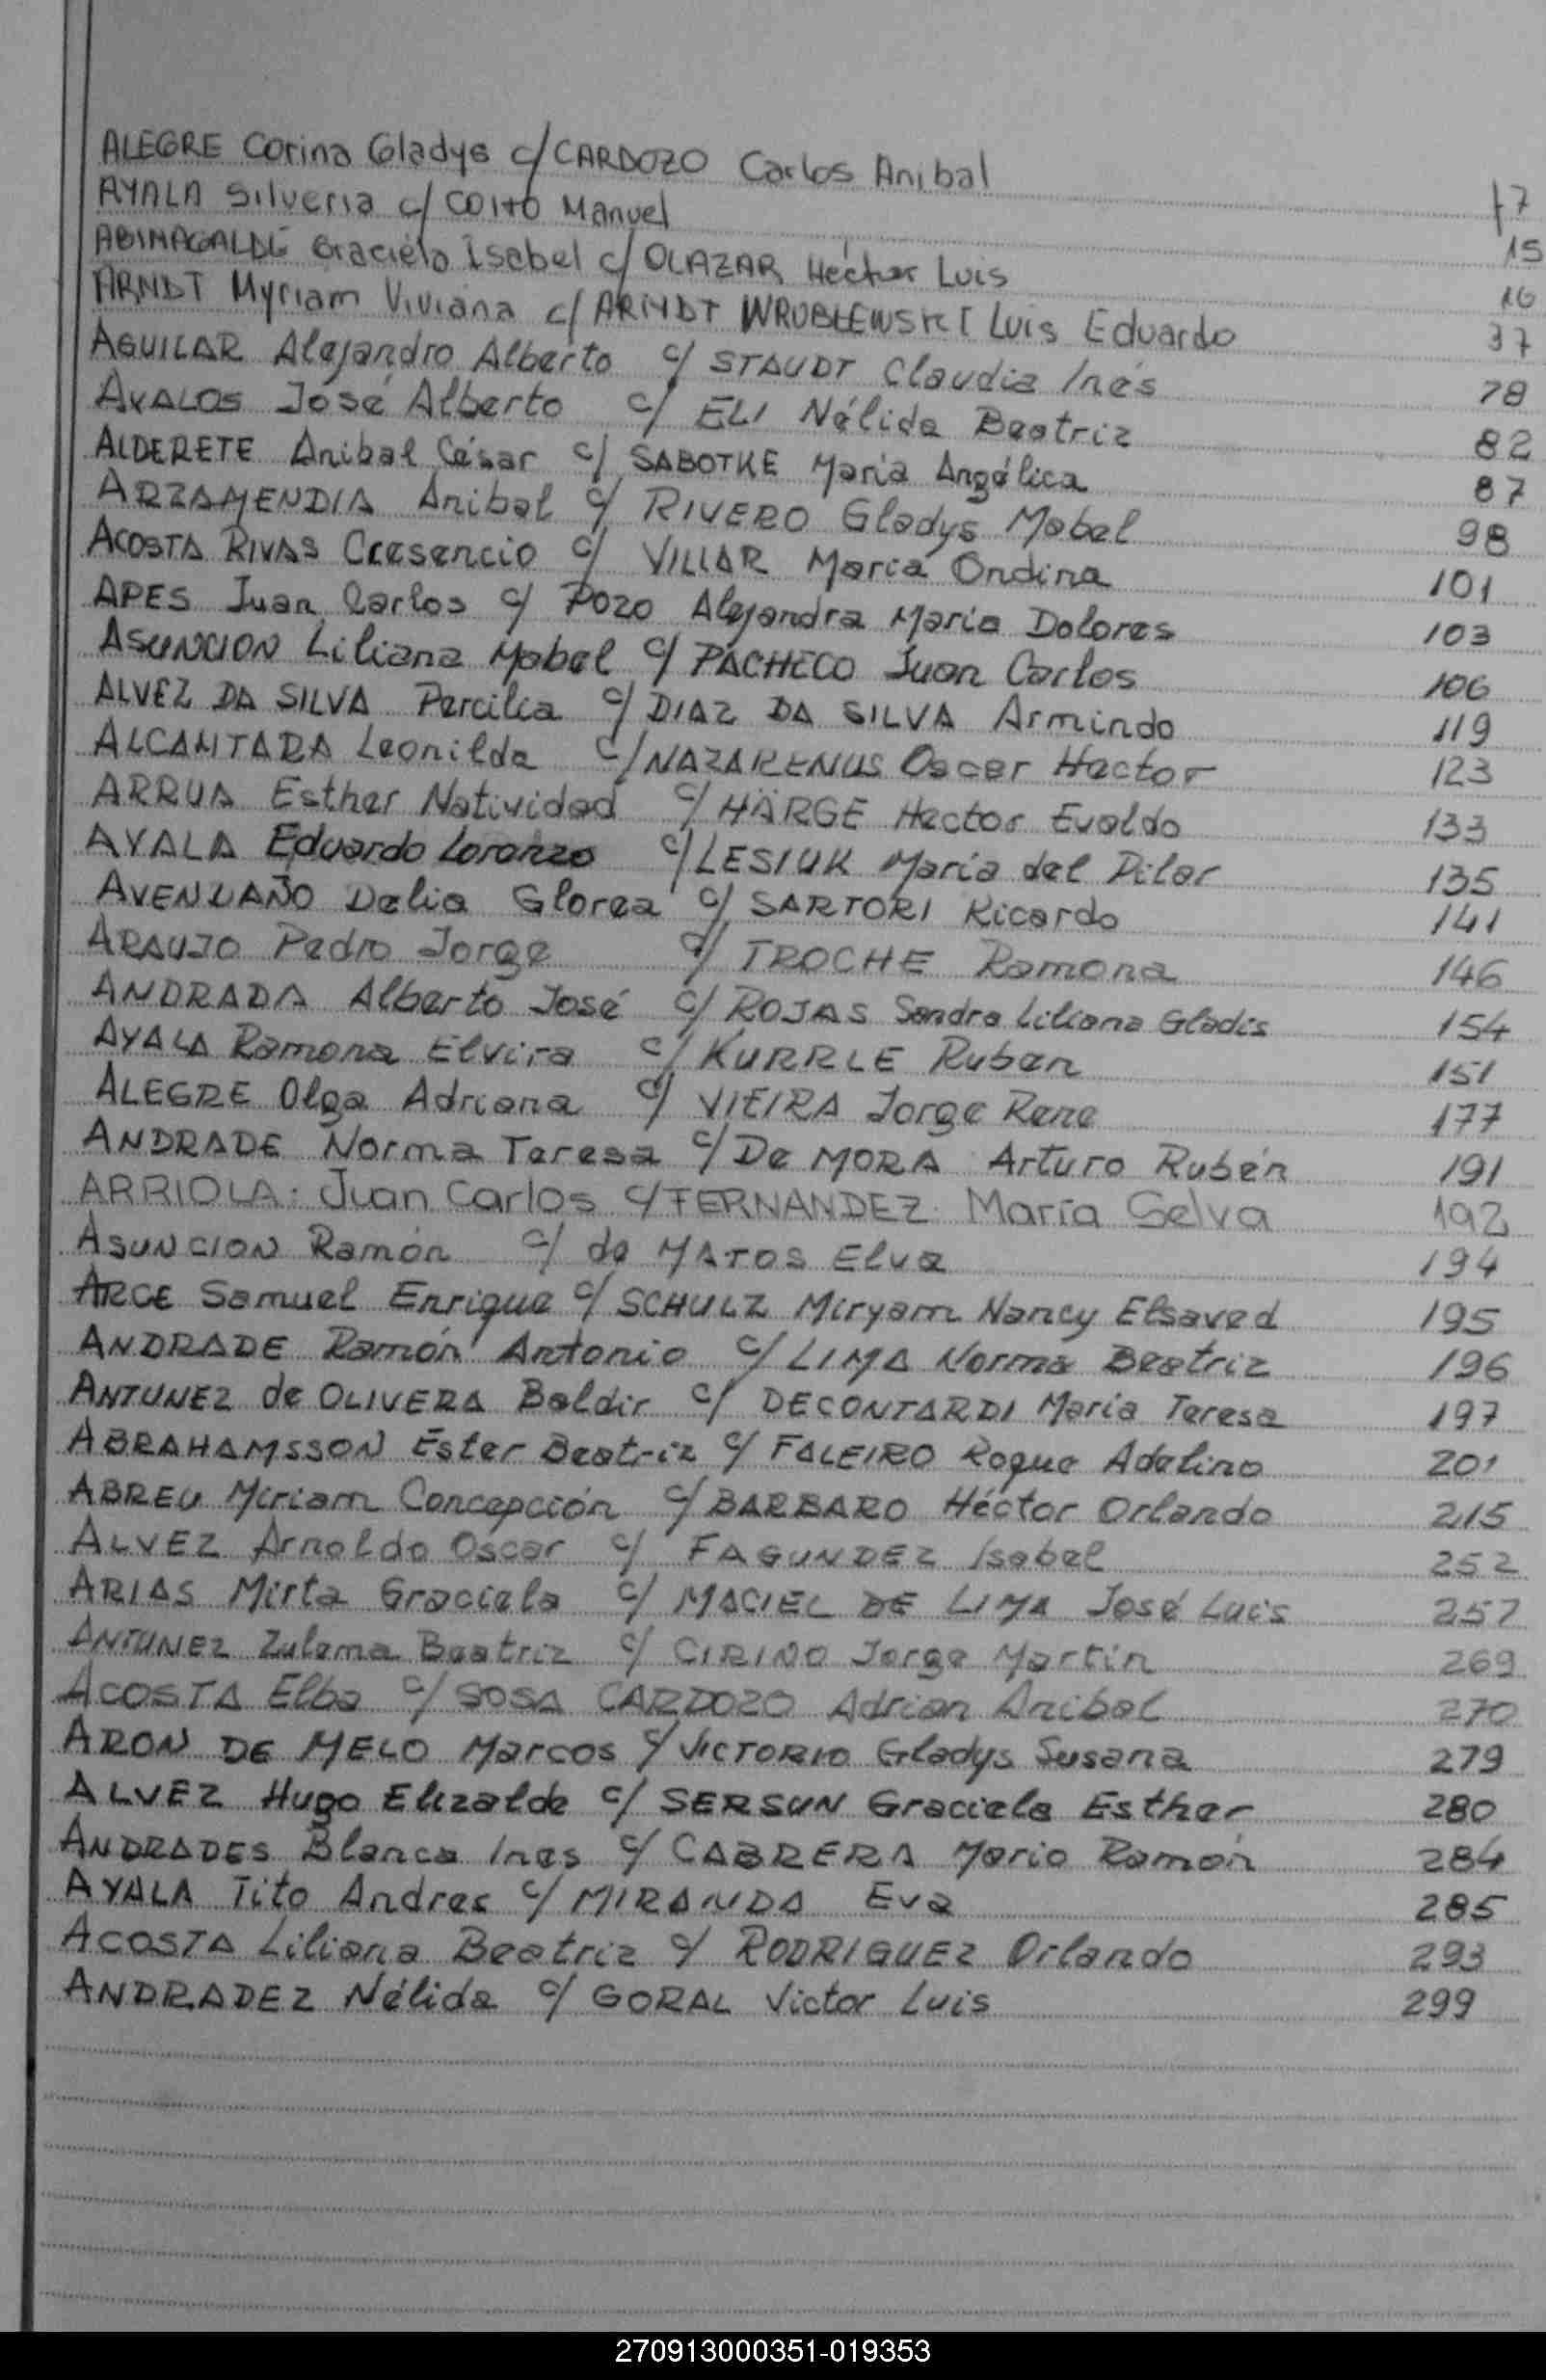 ALEGRE Corina Gladys c/ CARDOZO Carlos Anibal f 7
AYALA Silveria c/ COITO Manuel 15
ABIMAGALDE Graciela Isabel c/ OLAZAR Héctor Luis 16
ARNDT Myriam Viviana c/ ARNDT WRUBLEWSKI Luis Eduardo 37
AGUILAR Alejandro Alberto c/ STAUDT Claudia Inés 78
AVALOS José Alberto c/ ELI Nélida Beatriz 82
ALDERETE Anibal César c/ SABOTKE María Angélica 87
ARZAMENDIA Anibal c/ RIVERO Gladys Mabel 98
ACOSTA RIVAS Cresencio c/ VILLAR María Ondina 101
APES Juan Carlos c/ POZO Alejandra María Dolores 103
ASUNCION Liliana Mabel c/ PACHECO Juan Carlos 106
ALVEZ DA SILVA Percilia c/ DIAZ DA SILVA Armindo 119
ALCANTARA Leonilda c/ NAZARENUS Oscar Hector 123
ARRUA Esther Natividad c/ HARGE Hector Evaldo 133
AYALA Eduardo Lorenzo c/ LESIUK María del Pilar 135
AVENDAÑO Delia Glorea c/ SARTORI Ricardo 141
ARAUJO Pedro Jorge c/ TROCHE Ramona 146
ANDRADA Alberto José c/ ROJAS Sandra Liliana Gladis 154
AYALA Ramona Elvira c/ KURRLE Ruben 151
ALEGRE Olga Adriana c/ VIEIRA Jorge Rene 177
ANDRADE Norma Teresa c/ De MORA Arturo Rubén 191
ARRIOLA: Juan Carlos c/ FERNANDEZ María Selva 192
ASUNCION Ramón c/ de MATOS Elva 194
ARCE Samuel Enrique c/ SCHULZ Miryam Nancy Elsaved 195
ANDRADE Ramón Antonio c/ LIMA Norma Beatriz 196
ANTUNEZ de OLIVERA Baldir c/ DECONTARDI María Teresa 197
ABRAHAMSSON Ester Beatriz c/ FALEIRO Roque Adelino 201
ABREU Miriam Concepción c/ BARBARO Héctor Orlando 215
ALVEZ Arnoldo Oscar c/ FAGUNDEZ Isabel 252
ARIAS Mirta Graciela c/ MACIEL DE LIMA José Luis 257
ANTUNEZ Zulema Beatriz c/ CIRINO Jorge Martín 269
ACOSTA Elba c/ SOSA CARDOZO Adrian Anibal 270
ARON DE MELO Marcos c/ VICTORIO Gladys Susana 279
ALVEZ Hugo Elizalde c/ SERSUN Graciela Esther 280
ANDRADES Blanca Ines c/ CABRERA Mario Ramón 284
AYALA Tito Andres c/ MIRANDA Eva 285
ACOSTA Liliana Beatriz c/ RODRIGUEZ Orlando 293
ANDRADEZ Nélida c/ GORAL Victor Luis 299
270913000351-019353